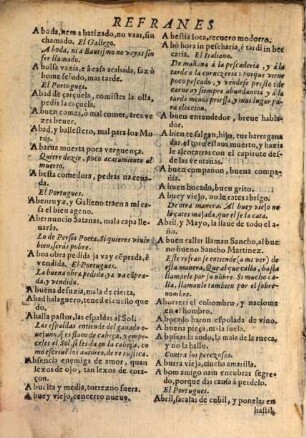 REFRANES
A boda, nem a batizado, no vaas, sin
chamado. El Gallego.
A boda, ni a Bautismo no vayas sin
ser llamado.
A bolsa vazia, e à casa acabada, faz ò
home sesudo, mas tarde.
El Portugues.
Abad de çarçuela, comistes la olla,
pedis la coçuela.
A buen comer, o mal comer, tres ve
zes beuer.
Abad, y ballestero, mal para los Mo
ros.
A barua muerta poca verguença.
Quiere dezir, poco acatamiento al
muerto.
A besta comedora, pedras na ceua
da.
El Portugues.
A benruyz, y Galieno traen a mi ca
sa el bien ageno.
Abernuncio Satanas, mala capa lle
uarás.
Lo de Persio Poeta. Si quieres viuir
bien, serás pobre.
A boa obra pedida ja va cõprada, è
vendida. El Portugues.
La buena obra pedida, ya va cõpra
da, y vendida.
A buena defensa, mala de cierta.
Abad halaguero, tened el cuello que
do.
A balla pastor, las espaldas al Sol.
Las espaldas entiende del ganado o-
sol les da en la cabeça,
Absencia enemiga de amor, quan
lexos de ojo, tan lexos de coraçon.
A buelta y media, torrezno fuera.
A buey viejo, cencerro nueuo.
A bestia loca, recuero modorro.
A bò hora in pescharia, è tardi in bec
caria. El Italiano.
De mañana à la pescaderia, y à la
tarde à la carniceria: porque viene
poco pescado, y vendese presto: de
carne ay siempre abundancia, y à la
tarde menos priessa, y mas lugar pa
ra eleccion.
A buen entendedor, breue habla-
dor.
A bien te salgan, hijo, tus barragana
das: el toro estaua muerto, y hazia
le alcocarras con el capirote desde
las ventanas.
A buen compañon, buena compa-
ñia.
A buen bocado, buen grito.
A buey viejo, no le cates abrigo.
De otra manera. Al buey viejo no
le cates majada, que el se la cata.
Abril, y Mayo, la llaue de todo el a-
ño.
A buen callar llaman Sancho, al bue
no bueno Sancho Martinez.
Este refran se entiende (a mi ver) de
esta manera, Que al que calla, basta
llamarle por su nõbre. Si mucho ca
lla, llamanle tambien por el sobre-
nombre.
Aburreci el cohombro, y naciome
en el hombro.
A bocado haron, espolada de vino.
A buena pieça, mala suela.
A buscas ando, la mala de la rueca, y
no la hallo.
Contra los perezosos.
A burra vieja, cincha amarilla.
A bom amigo nam encubras segre-
do, porque das causa à perdelo.
El Portugues.
Abril, sacalas de cubil, y ponelas en
hastil.